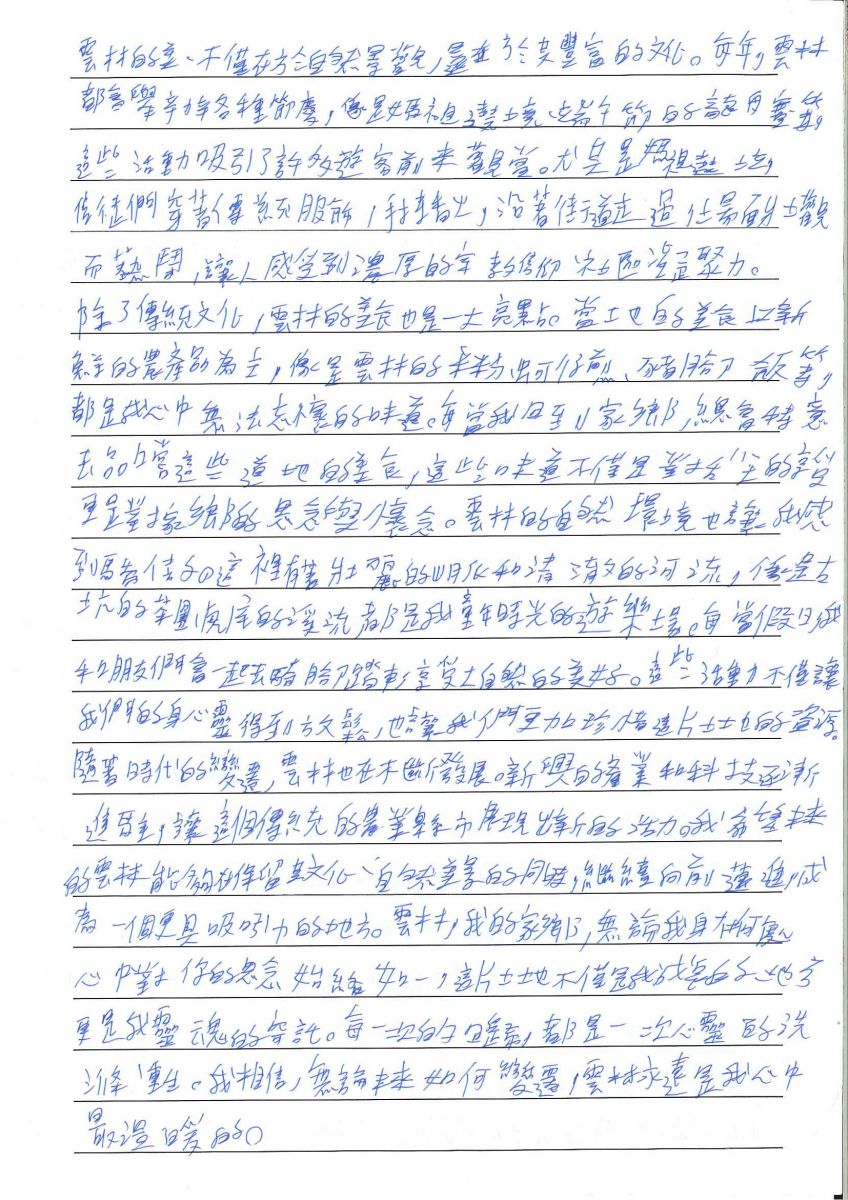 雲林的美、不僅在於自然景觀,更在於其豐富的文化。每年,雲林
都會舉辦各種節慶,像是媽祖遶境、端午節的龍舟賽等,
這些活動吸引了許多遊客前來觀賞。尤其是媽祖遶境
信徒們穿著傳統服飾,手持香火,沿著街道走過,場面壯觀
而熱鬧,讓人感受到濃厚的宗教信仰社區凝聚力。
除了傳統文化,雲林的美食也是一大亮點。當土地的美食以新
鮮的農產品為主,像是雲林的米粉、蚵仔煎、豬腳飯等,
都是我心中無法忘懷的味道。每當我回到家鄉,總會特意
去品嚐這些道地的美食,這些味道不僅是對舌尖的享受
更是對家鄉的思念與懷念。雲林的自然環境也讓我感
到驕傲。這裡有著壯麗的山水和清澈的河流,像是古
坑的茶園、虎尾的溪流都是我童年時光的遊樂場。每當假日,我
和朋友們會一起去騎腳踏車,享受大自然的美好。這些活動不僅讓
我們的身心靈得到放鬆,也讓我們更加珍惜這片土地的資源。
隨著時代的變遷,雲林也在不斷發展。新興的產業和科技逐漸
進駐,讓這個傳統的農業縣市展現出新的活力。我希望未來
的雲林能夠在保留其文化、自然美景的同時,繼續向前邁進,成
為一個更具吸引力的地方。雲林,我的家鄉,無論我身在何處,
心中對你的思念始終如一,這片土地不僅是我成長的地方
更是我靈魂的寄託。每一次的回歸,都是一次心靈的洗
滌、重生。我相信,無論未來如何變遷,雲林永遠是我心中
最溫暖的。